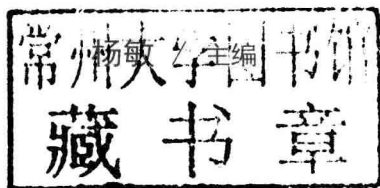 常州大学图书馆
杨敏 / 主编
藏书章